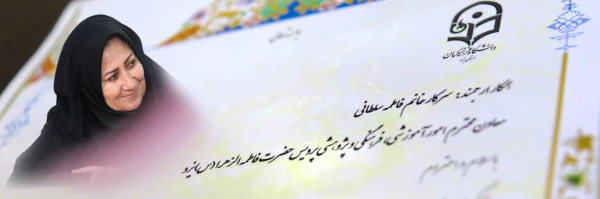 باسمه تعالی
دانشگاه فرهنگیان
همکار ارجمند: سرکار خانم فاطمه سلطانی
معاون محترم امور آموزشی، فرهنگی و پژوهشی پردیس حضرت فاطمه الزهرا (س) یزد
با سلام و احترام